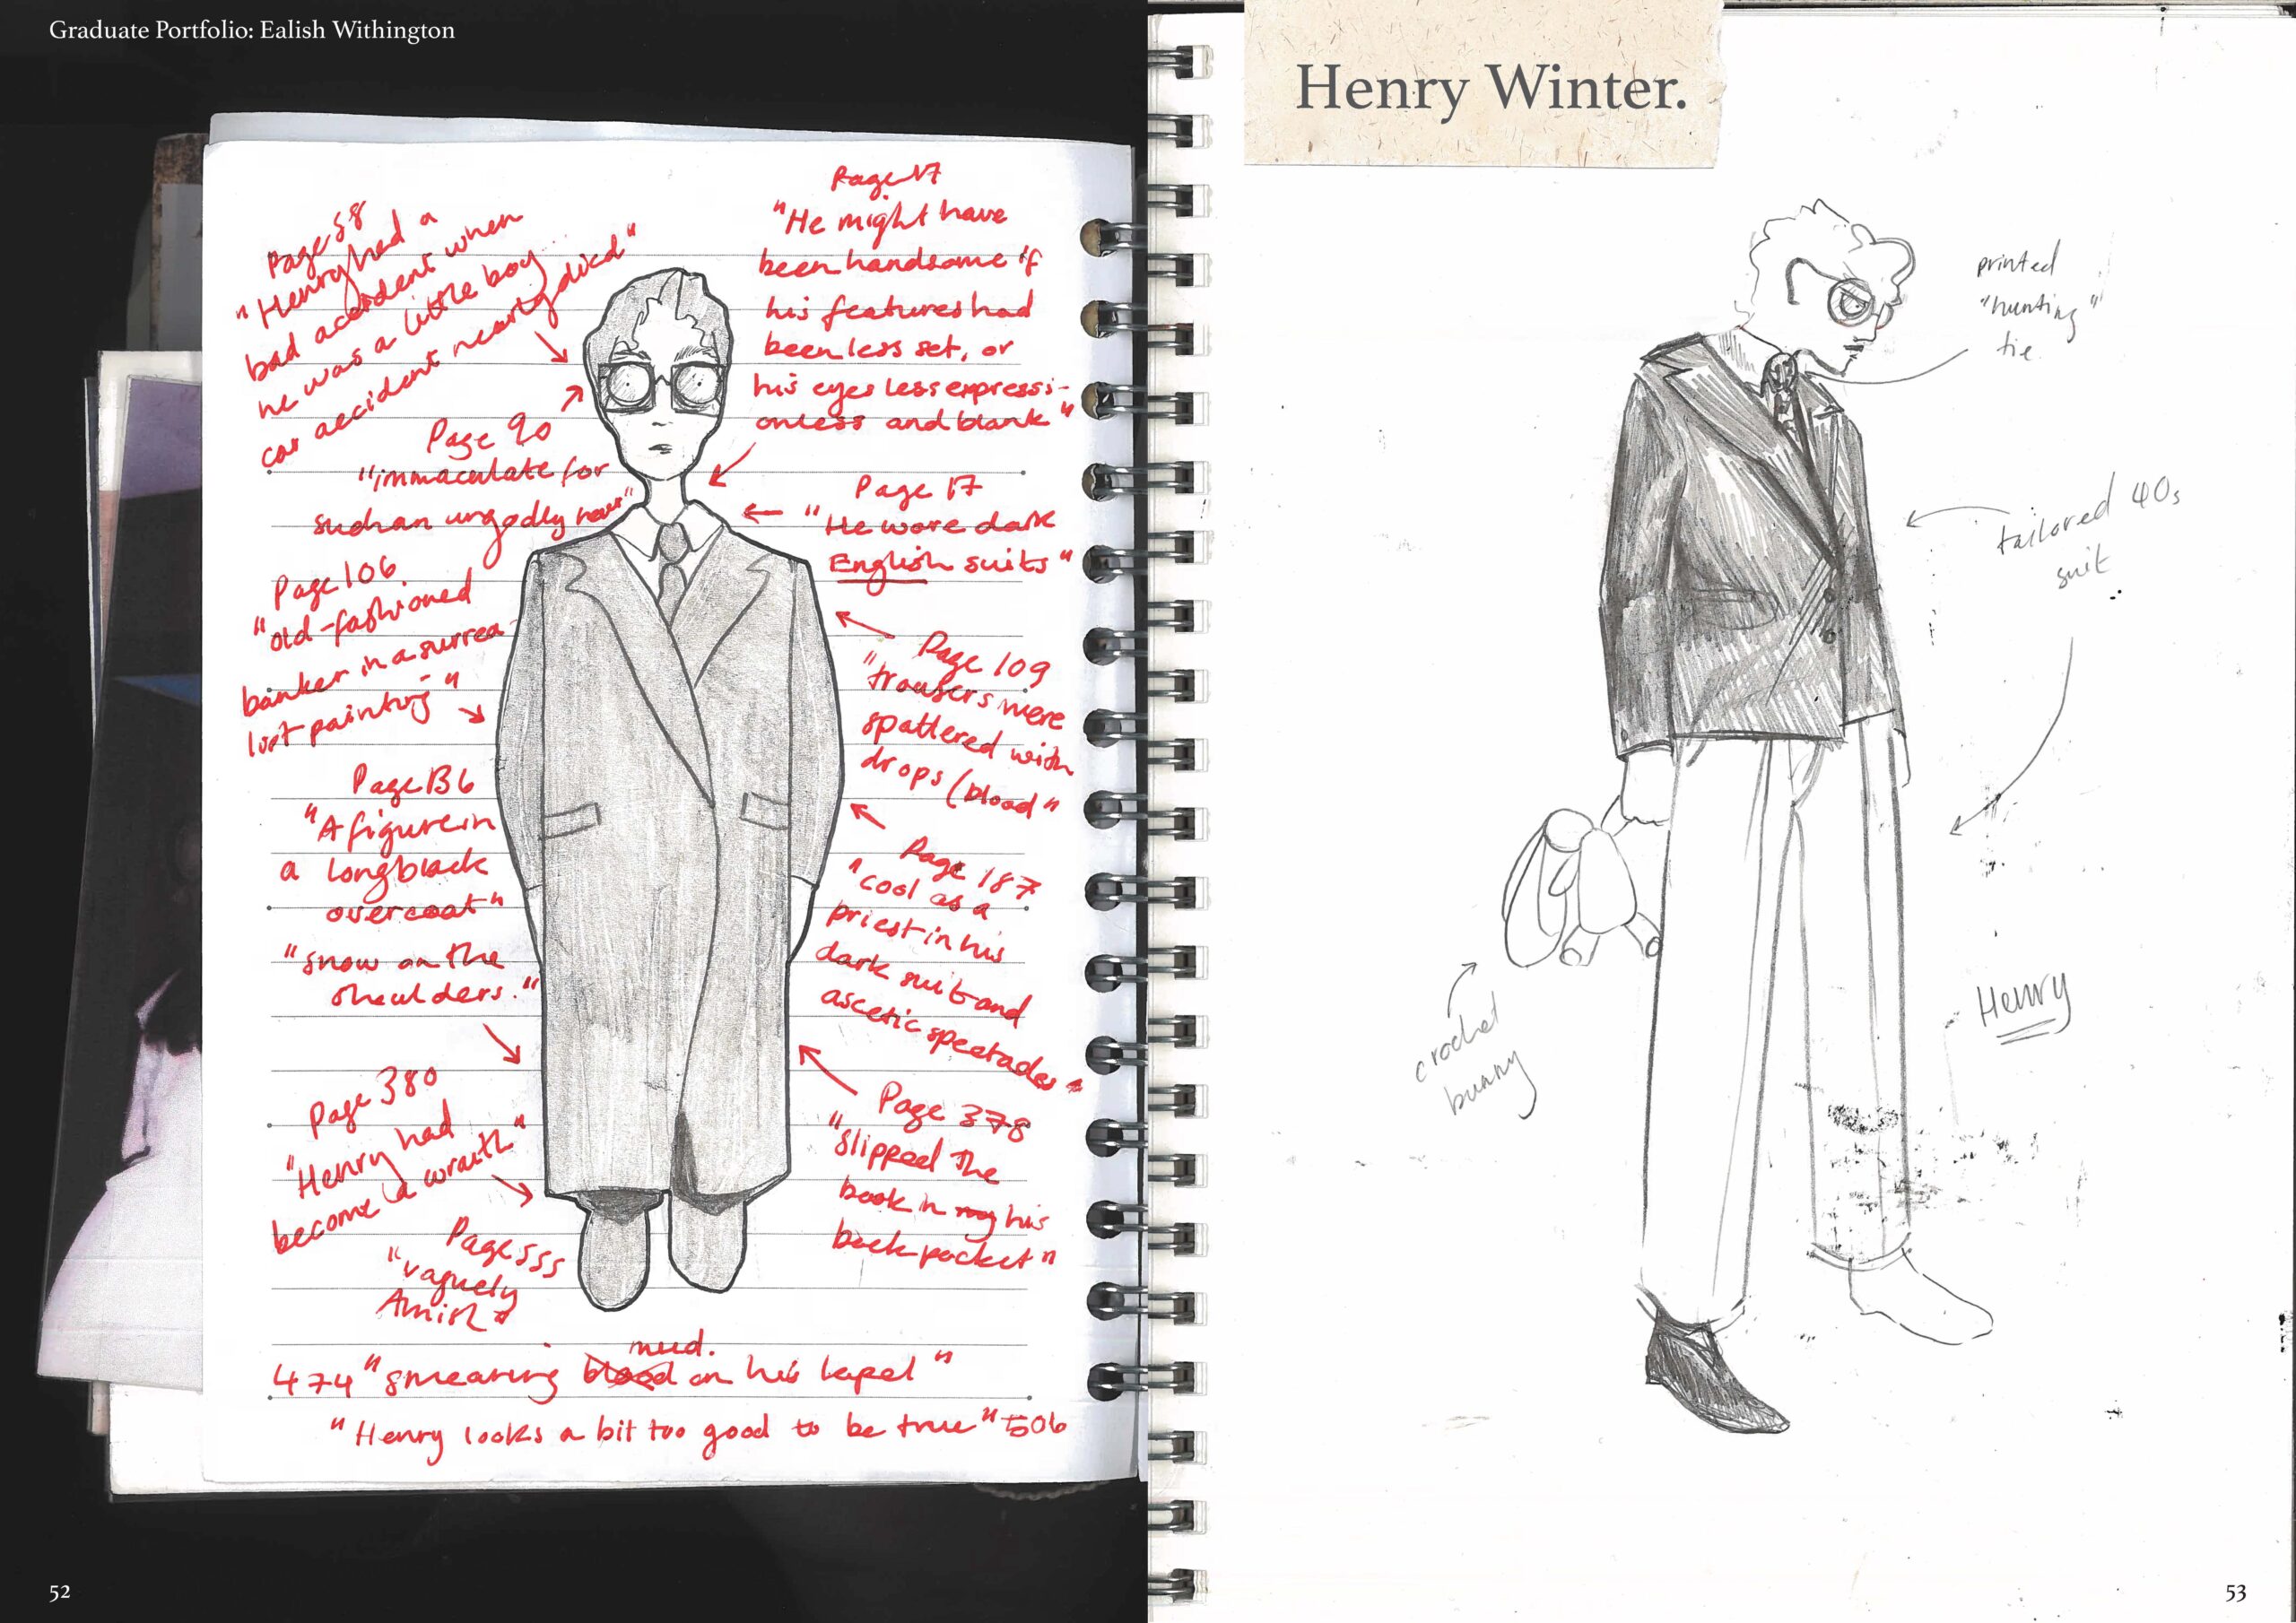 Graduate Portfolio: Ealish Withington
Page 58
"Henry had a
bad accident when
he was a little boy...
car accident nearly died"
Page 17
"He might have
been handsome if
his features had
been less set, or
his eyes less expressi-
onless and blank"
Page 90
"immaculate for
such an ungodly hour"
Page 17
"He wore dark
English suits"
Page 106.
"old-fashioned
banker in a surrea-
list painting"
Page 109
"trousers were
spattered with
drops (blood"
Page 136
"A figure in
a long black
overcoat"
"snow on the
shoulders."
Page 187
"cool as a
priest in his
dark suit and
ascetic spectacles"
Page 380
"Henry had
become a wraith"
Page 378
"slipped the
book in my his
back pocket"
Page 555
"vaguely
Amish"
mud.
474 "smearing blood on his lapel"
"Henry looks a bit too good to be true" 506
52
Henry Winter.
printed
"hunting"
tie
tailored 40s
suit
crochet
bunny
Henry
53